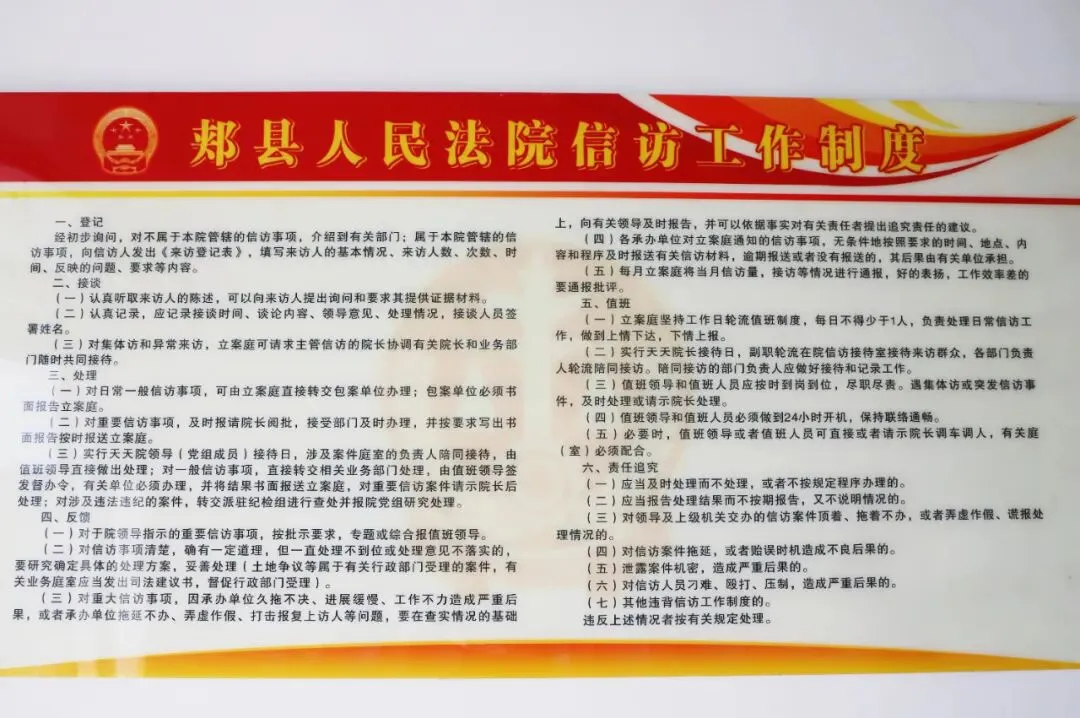 郏县人民法院信访工作制度
一、登记
经初步询问，对不属于本院管辖的信访事项，介绍到有关部门；属于本院管辖的信
访事项，向信访人发出《来访登记表》，填写来访人的基本情况、来访人数、次数、时
间、反映的问题、要求等内容。
二、接谈
（一）认真听取来访人的陈述，可以向来访人提出询问和要求其提供证据材料。
（二）认真记录，应记录接谈时间、谈论内容、领导意见、处理情况，接谈人员签
署姓名。
（三）对集体访和异常来访，立案庭可请求主管信访的院长协调有关院长和业务部
门随时共同接待。
三、处理
（一）对日常一般信访事项，可由立案庭直接转交包案单位办理；包案单位必须书
面报告立案庭。
（二）对重要信访事项，及时报请院长阅批，接受部门及时办理，并按要求写出书
面报告按时报送立案庭。
（三）实行天天院领导（党组成员）接待日，涉及案件庭室的负责人陪同接待，由
值班领导直接做出处理；对一般信访事项，直接转交相关业务部门处理，由值班领导签
发督办令，有关单位必须办理，并将结果书面报送立案庭，对重要信访案件请示院长后
处理；对涉及违法违纪的案件，转交派驻纪检组进行查处并报院党组研究处理。
四、反馈
（一）对于院领导指示的重要信访事项，按批示要求，专题或综合报值班领导。
（二）对信访事项清楚，确有一定道理，但一直处理不到位或处理意见不落实的，
要研究确定具体的处理方案，妥善处理（土地争议等属于有关行政部门受理的案件，有
关业务庭室应当发出司法建议书，督促行政部门受理）。
（三）对重大信访事项，因承办单位久拖不决、进展缓慢、工作不力造成严重后
果，或者承办单位拖延不办、弄虚作假、打击报复上访人等问题，要在查实情况的基础
上，向有关领导及时报告，并可以依据事实对有关责任者提出追究责任的建议。
（四）各承办单位对立案庭通知的信访事项，无条件地按照要求的时间、地点、内
容和程序及时报送有关信访材料，逾期报送或者没有报送的，其后果由有关单位承担。
（五）每月立案庭将当月信访量，接访等情况进行通报，好的表扬，工作效率差的
要通报批评。
五、值班
（一）立案庭坚持工作日轮流值班制度，每日不得少于1人，负责处理日常信访工
作，做到上情下达，下情上报。
（二）实行天天院长接待日，副职轮流在院信访接待室接待来访群众，各部门负责
人轮流陪同接访。陪同接访的部门负责人应做好接待和记录工作。
（三）值班领导和值班人员应按时到岗到位，尽职尽责。遇集体访或突发信访事
件，及时处理或请示院长处理。
（四）值班领导和值班人员必须做到24小时开机，保持联络通畅。
（五）必要时，值班领导或者值班人员可直接或者请示院长调车调人，有关庭
（室）必须配合。
六、责任追究
（一）应当及时处理而不处理，或者不按规定程序办理的。
（二）应当报告处理结果而不按期报告，又不说明情况的。
（三）对领导及上级机关交办的信访案件顶着、拖着不办，或者弄虚作假、谎报处
理情况的。
（四）对信访案件拖延，或者贻误时机造成不良后果的。
（五）泄露案件机密，造成严重后果的。
（六）对信访人员刁难、殴打、压制，造成严重后果的。
（七）其他违背信访工作制度的。
违反上述情况者按有关规定处理。